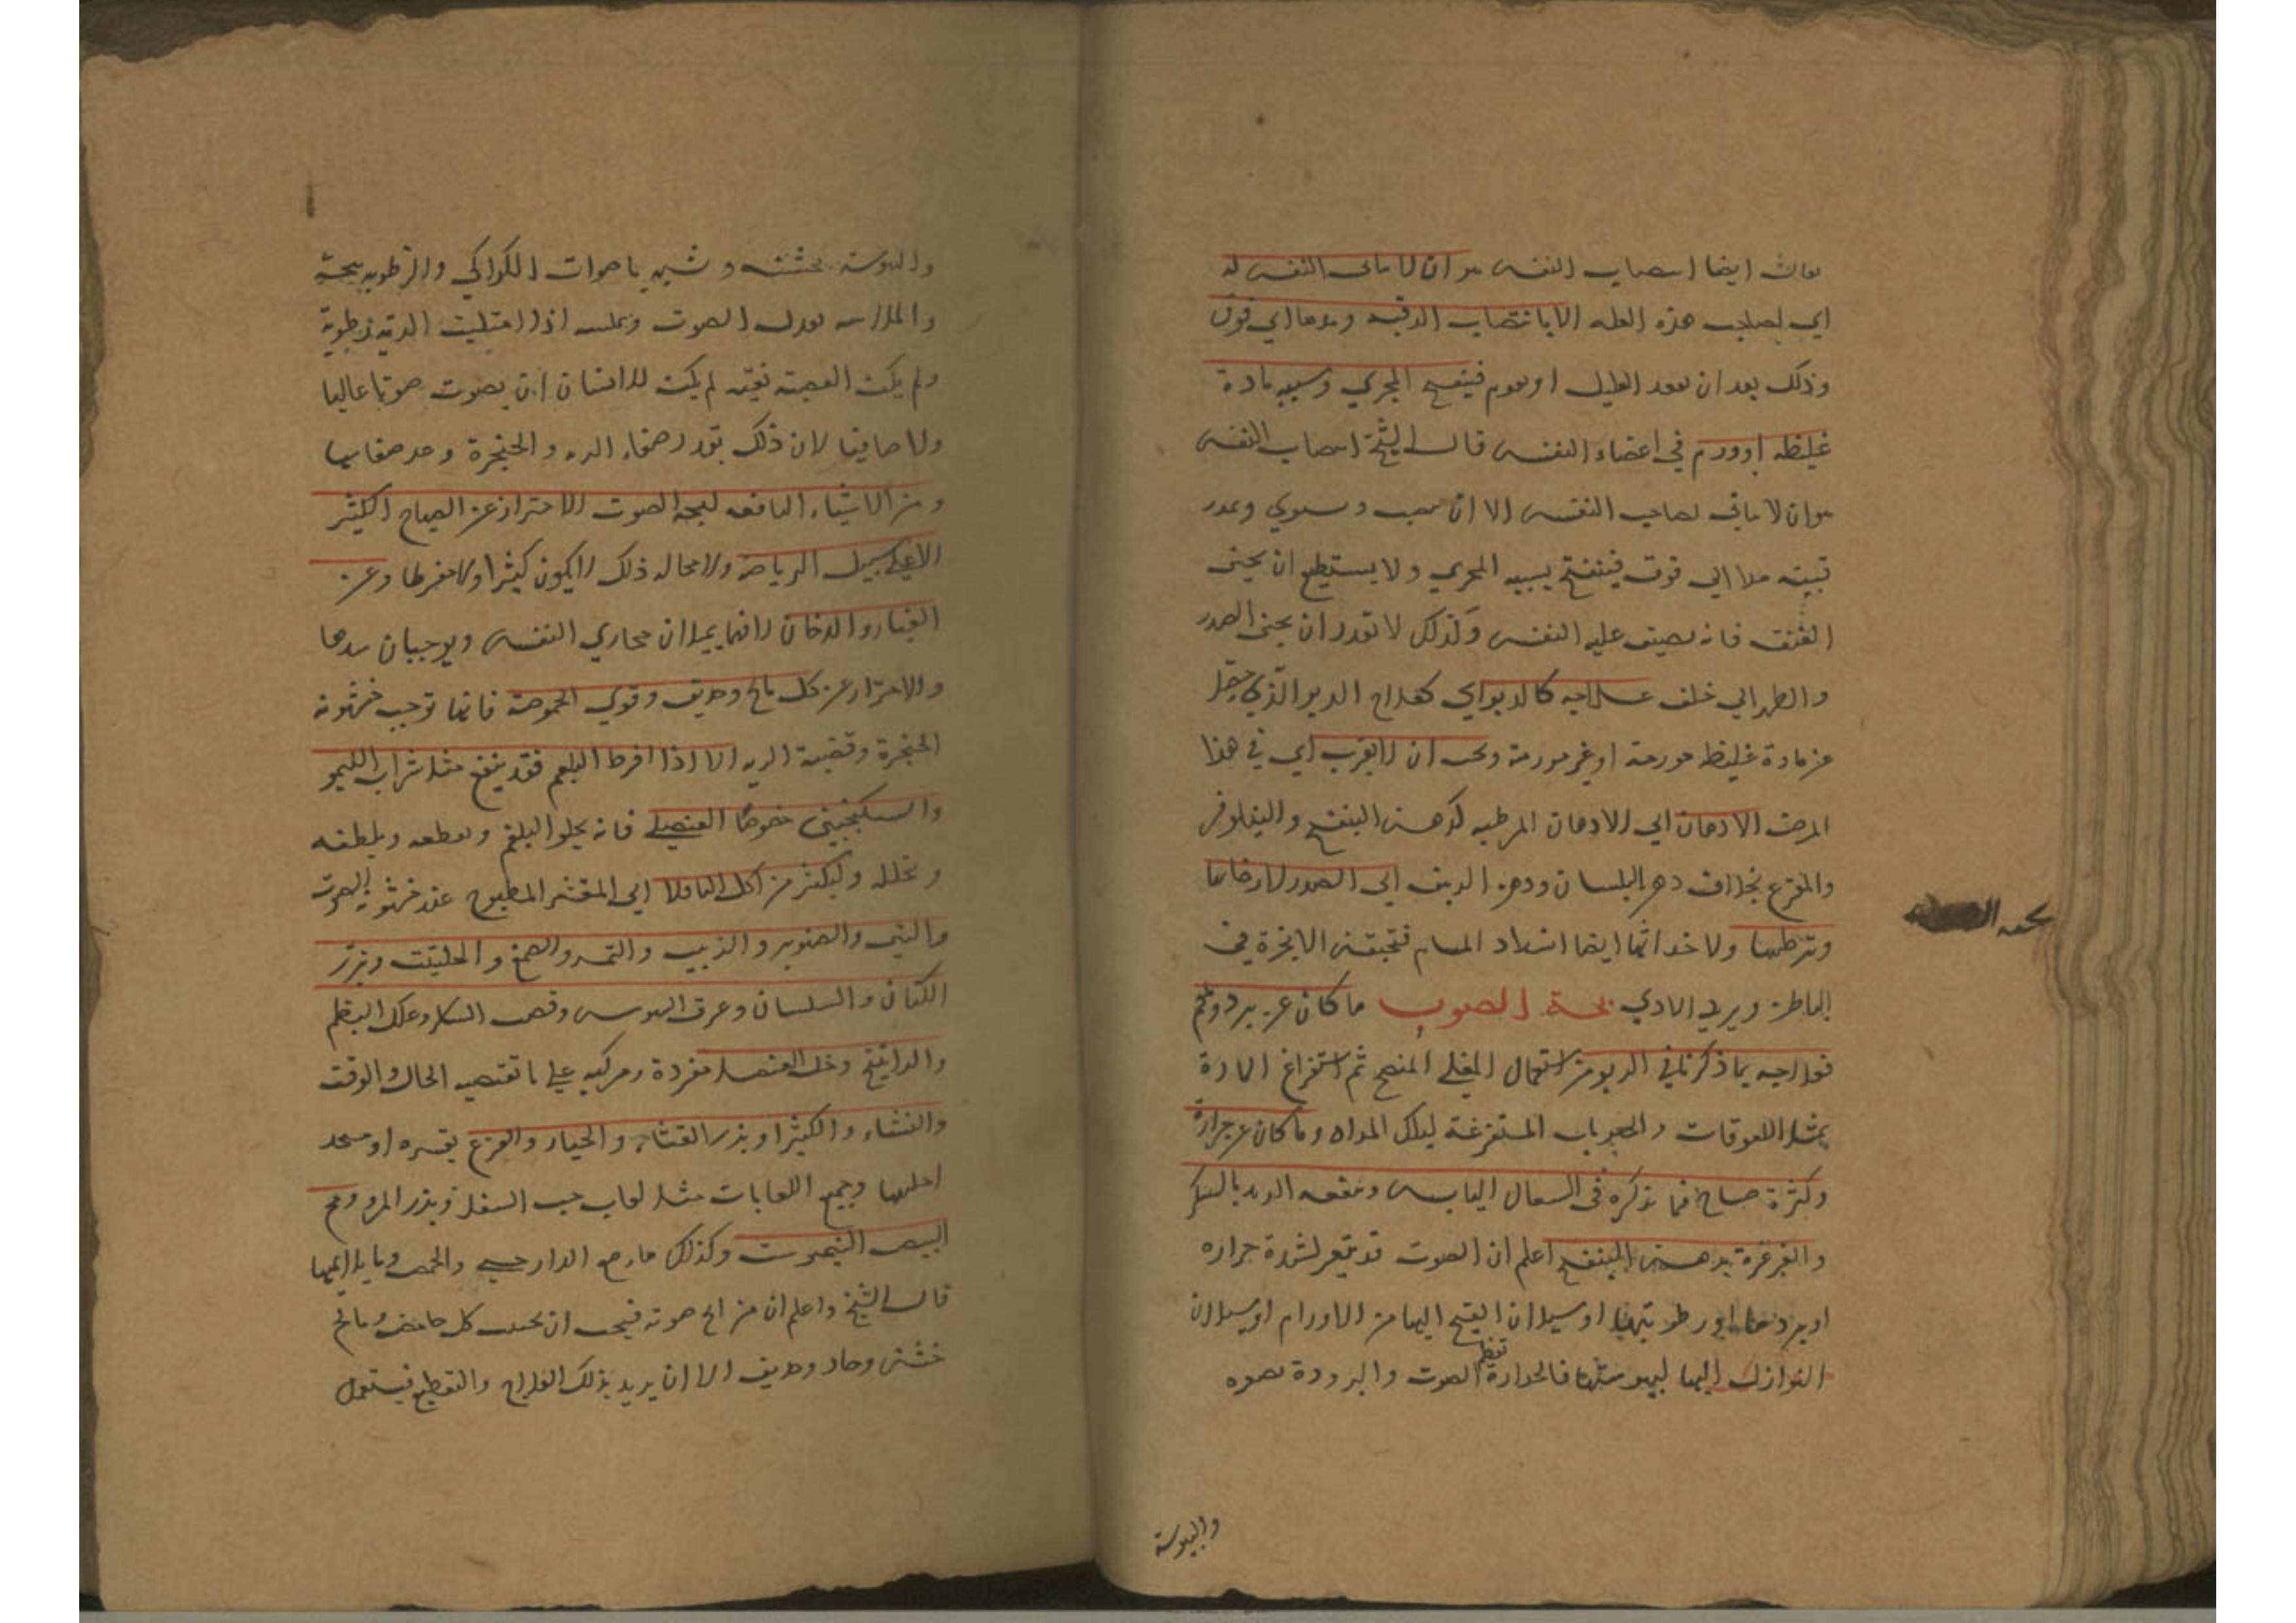 ايضا انتصاب النفس هو ان لا ياتى النفس له
اي لصاحب هذه العله الا بانتصاب الرقبه ومدها الي فوق
وذلك بعد ان يقعد العليل او يقوم فينفتح المجري وسببه مادة
غليظه او ورم في اعضاء النفس قال الشيخ انتصاب النفس
هو ان لا ياتي لصاحب النفس الا ان ينتصب ويستوي ويمدد
رقبته مدا الي فوق فينفتح بسببه المجري ولا يستطيع ان يحنى
العنق فانه يضيق عليه النفس وكذلك لا يقدر ان يحنى الصدر
والظهر الي خلف علاجه كالربو اي كعلاج الربو الذي
عن مادة غليظه مورمة او غير مورمة ويجب ان لا يقرب اي في هذا
المرض الادهان اي الادهان المرطبه كدهن البنفسج والنيلوفر
والقرع بخلاف دهن البلسان ودهن الي الصدر لارخائها
وترطيبها ولاحداثها ايضا انسداد المسام فتحتقن الابخرة في
الباطن ويزيد الاذي بحة الصوت ما كان عن برد وبلغم
فعلاجه بما ذكرنا في الربو من استعمال المغلي المنضج ثم استفراغ المادة
بمثل اللعوقات والحبوب المستفرغة لتلك المواد وما كان عن حرارة
وكثرة صياح فما نذكره في السعال اليابس وينفعه الزبد بالسكر
والغرغرة بدهن البنفسج اعلم ان الصوت قد يتغير لشدة حراره
او بردها او رطوبتها او سيلان القيح اليها من الاورام او سيلان
النوازل اليها ليبوستها فالحرارة تعظم الصوت والبرودة
واليبوسة
واليبوسة تخشنه وتشبهه باصوات الكراكي والرطوبه تبحه
والملاسه تعدل الصوت وتملسه اذا امتليت الرية رطوبة
ولم يكن القصبة نقيه لم يكن للانسان ان يصوت صوتا عاليا
ولا صافيا لان ذلك بقدر صفاء الريه والحنجرة
ومن الاشياء النافعه لبحة الصوت الاحتراز عن الصياح الكثير
الا علي سبيل الرياضة ولا محاله ذلك لا يكون كثيرا ولا مفرطا وعن
الغبار والدخان لانهما يملان مجاري النفس ويوجبان سدها
والاحتراز عن كل مالح وحريف وقوي الحموضة فانها توجب خشونة
الحنجرة وقصبة الريه الا اذا افرط البلغم فقد ينفع مثل شراب الليمو
والسكنجبين خصوصا العنصلي فانه يجلوا البلغم ويقطعه ويلطفه
ويحلله وليكثر من اكل الباقلا اي المقشر المطبوخ عند خشونة الصوت
والتين والصنوبر والزبيب والتمر والصمغ والحلتيت وبزر
الكتان والسبستان وعرق السوس وقصب السكر وعلك البطم
والراتينج وخل العنصل مفردة ومركبه علي ما تقتضيه الحال والوقت
والنشاء والكثيرا وبزر القثاء والخيار والقرع
وجميع اللعابات مثل لعاب حب السفرجل وبذر المرو ومح
البيض النيمرشت وكذلك الدارصيني والحمص وما يلايمها
قال الشيخ واعلم ان من ابح صوته فيجب ان يجتنب كل حامض ومالح
خشن وحاد وحريف الا ان يريد بذلك العلاج والتقطيع فيستعمل